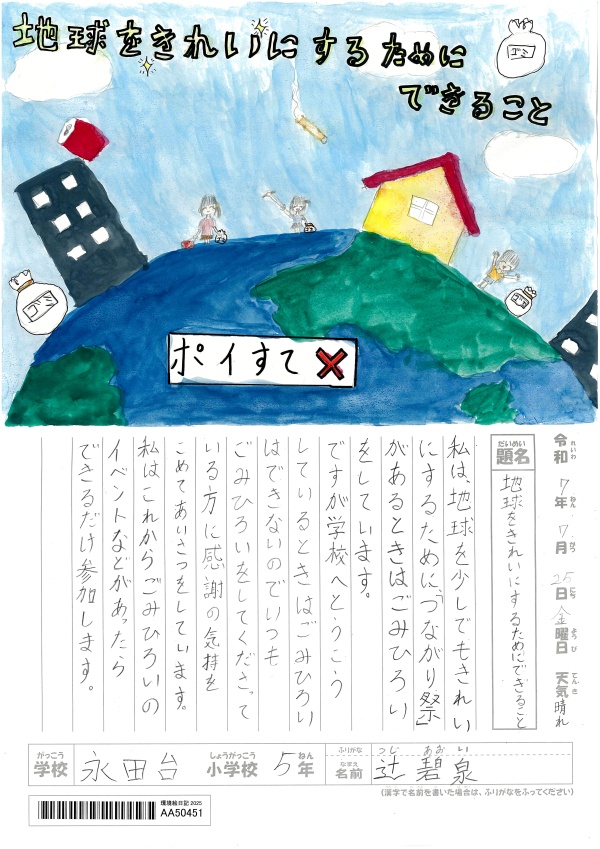 地球をきれいにするために
できること
ゴミ
ゴミ
ゴミ
ポイすて
令和7年7月25日金曜日 天気晴れ
れいわ ねん がつ にち ようび てんき
だいめい
題名
地球をきれいにするためにできること
私は、地球を少しでもきれい
にするために「つながり祭」
があるときはごみひろい
をしています。
ですが学校へとうこう
しているときはごみひろい
はできないのでいつも
ごみひろいをしてくださって
いる方に感謝の気持を
こめてあいさつをしています。
私はこれからごみひろいの
イベントなどがあったら
できるだけ参加します。
がっこう しょうがっこう ねん ふりがな つじ あおい
学校 永田台 小学校 5年 なまえ 名前 辻 碧泉
(漢字で名前を書いた場合は、ふりがなをふってください)
環境絵日記 2025
AA50451